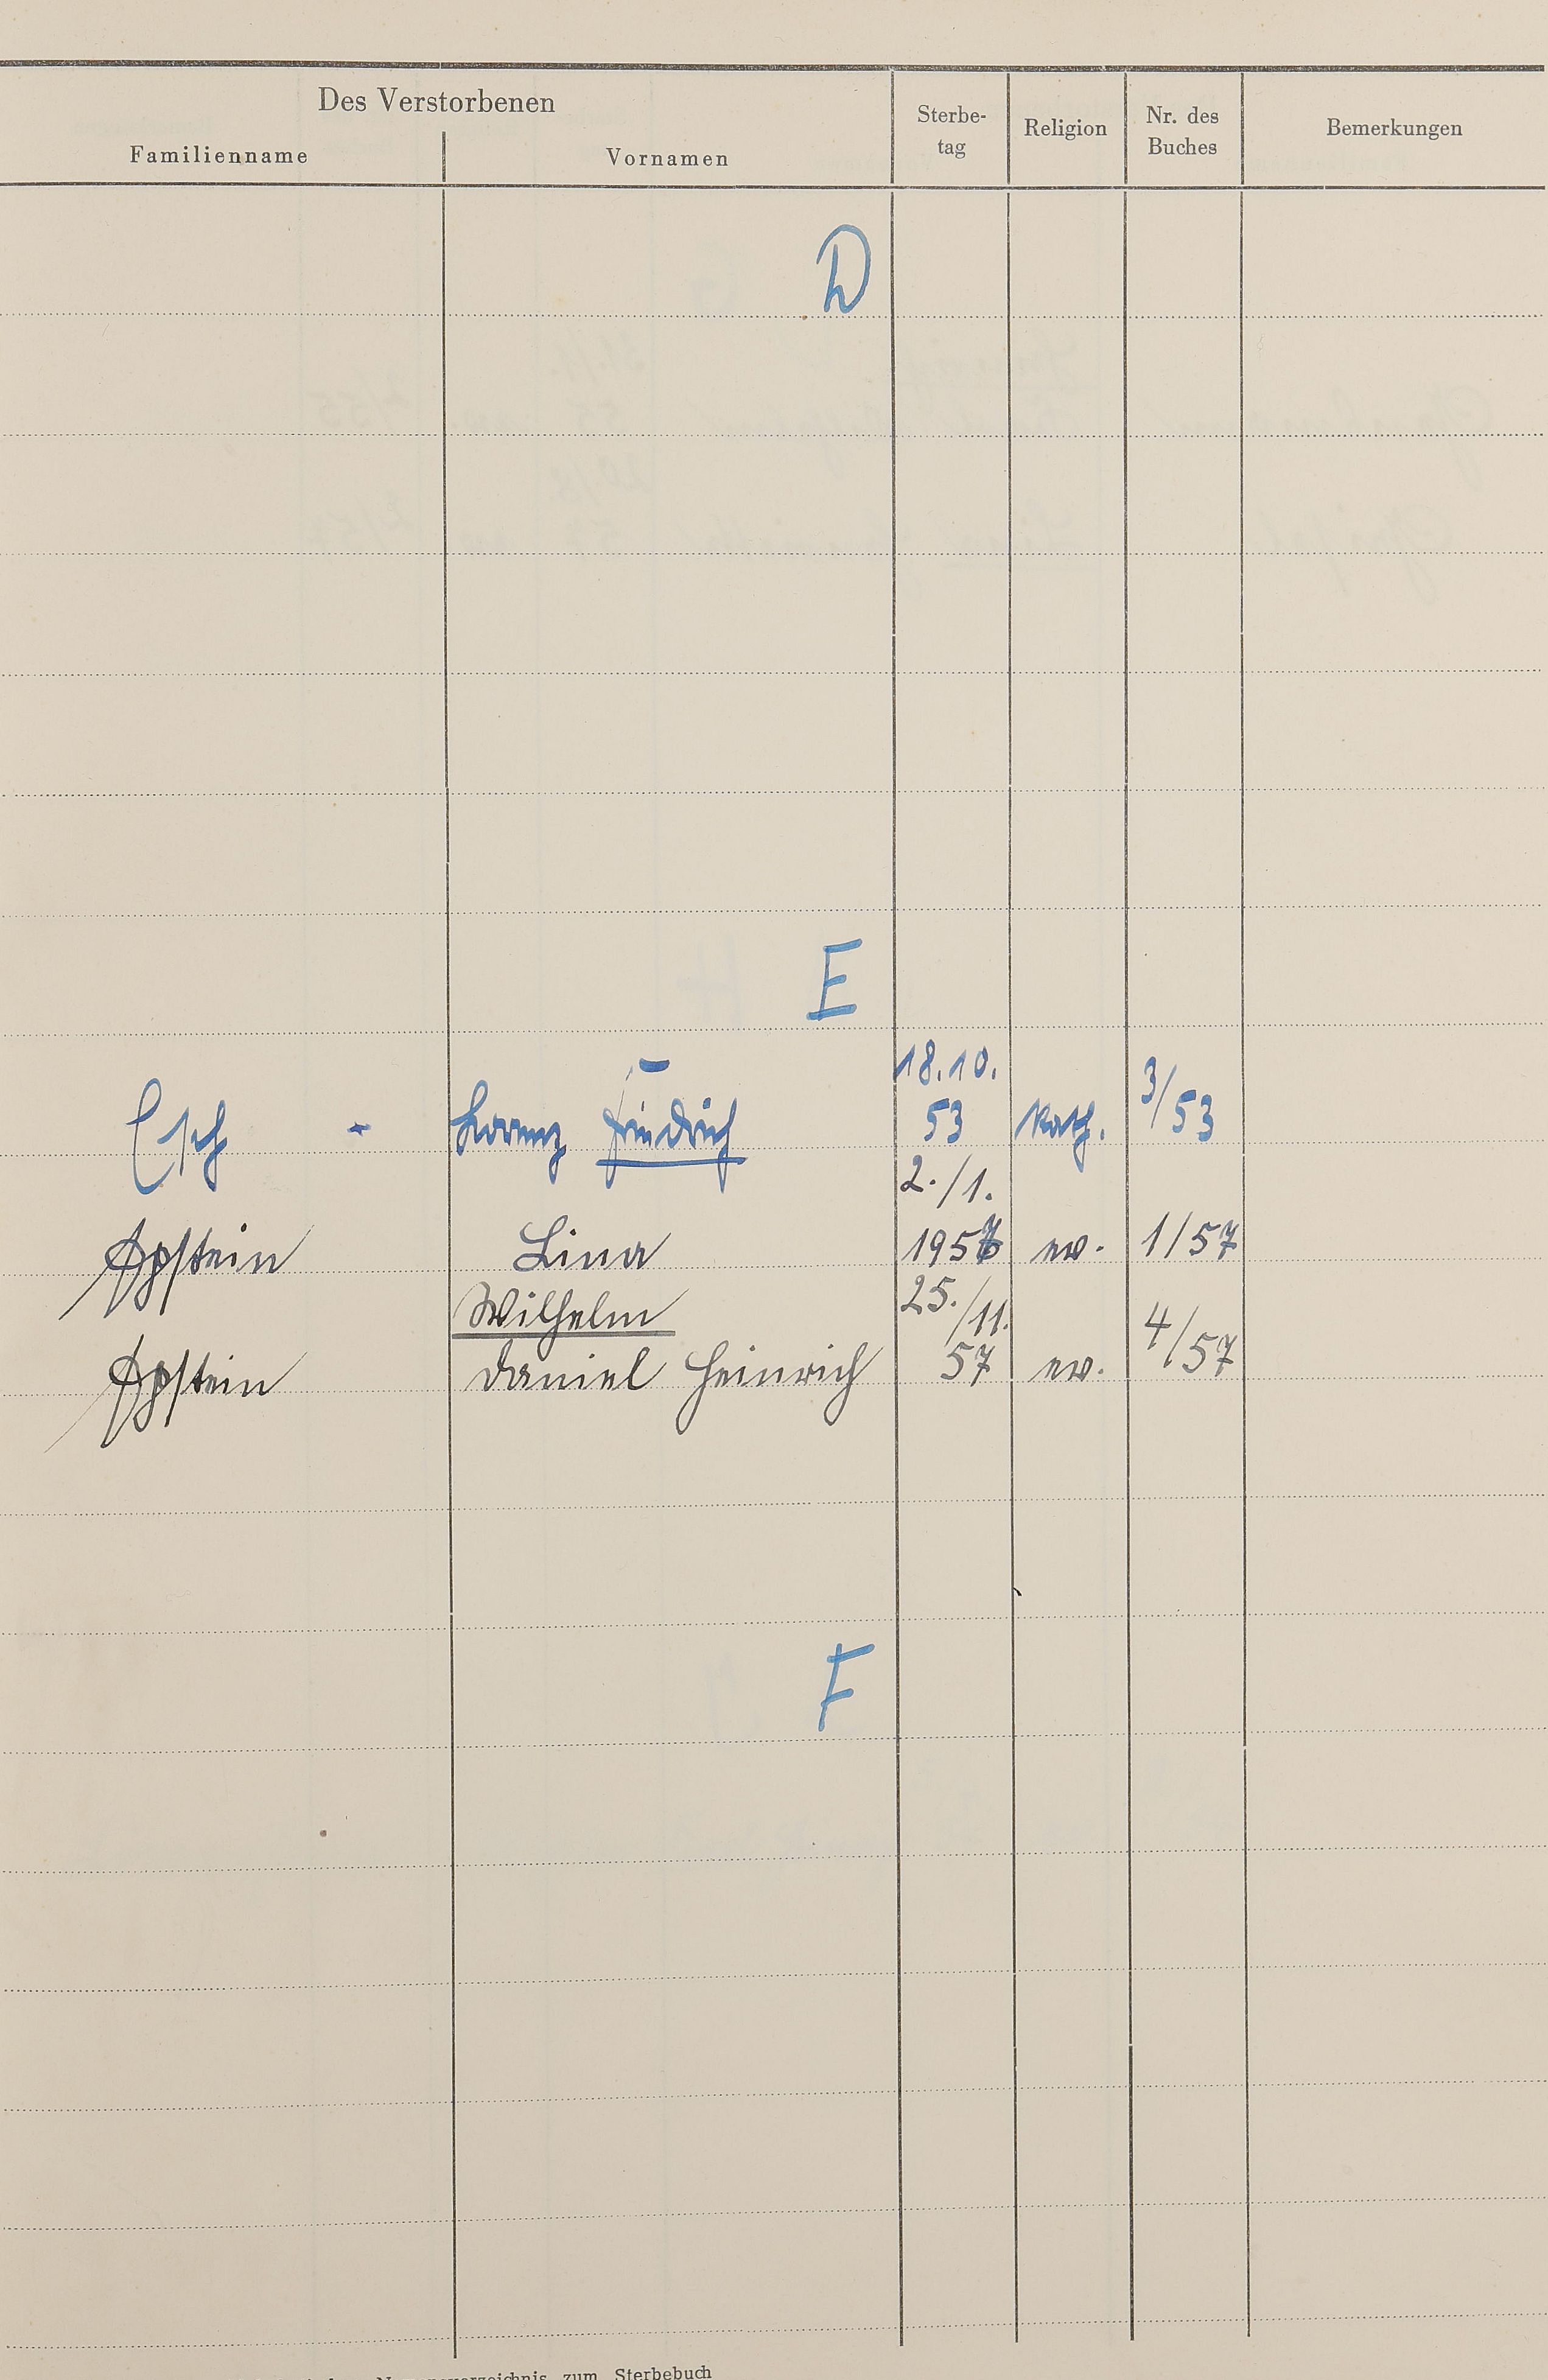 Des Verstorbenen
Familienname Vornamen Sterbe-tag Religion Nr. des Buches Bemerkungen
D
E
18.10.
Esch - Lorenz Friedrich 53 Kath. 3/53
2./1.
Epstein Lina 1957 ev. 1/57
Wilhelm 25./11.
Epstein Daniel Heinrich 57 ev. 4/57
F
zum Sterbebuch